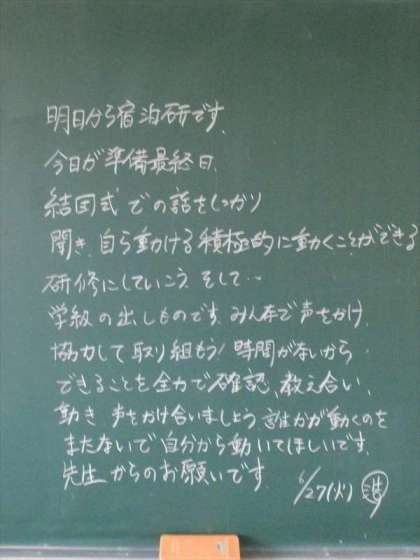 明日から宿泊研です。
今日が準備最終日。
結団式での話をしっかり
聞き、自ら動ける積極的に動くことができる
研修にしていこう。そして…
学級の出しものです。みんなで声をかけ、
協力して取り組もう！時間がないから
できることを全力で確認、教え合い、
動き 声をかけ合いましょう。誰かが動くのを
またないで自分から動いてほしいです。
先生からのお願いです。
6/27(火)